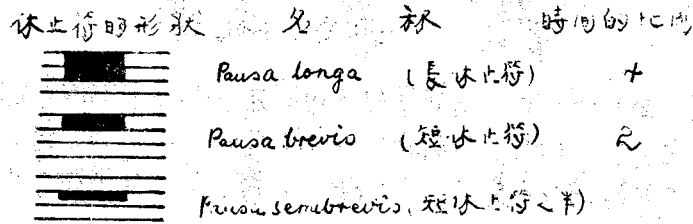 休止符的形狀 名 称 時间的比例
Pausa longa (長休止符) 4
Pausa brevis (短休止符) 2
Pausa semibrevis, 短休止符之半)